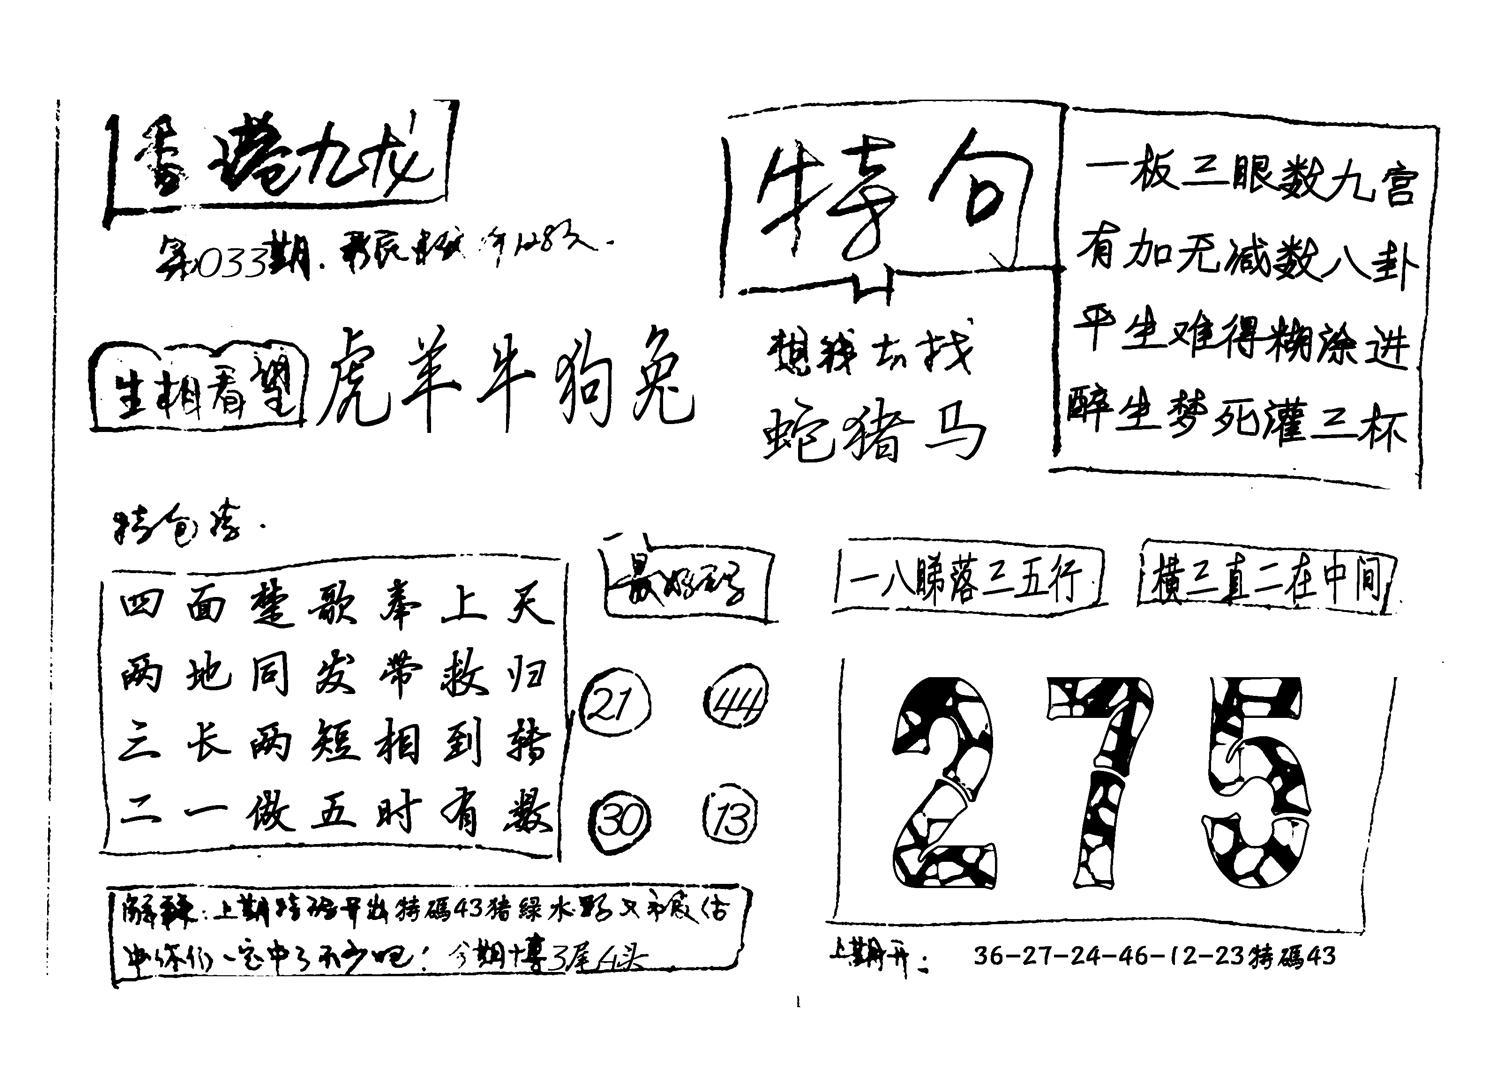 香港九龙
第033期.
特句
一板三眼数九宫
有加无减数八卦
平生难得糊涂进
醉生梦死灌三杯
生相看望
虎羊牛狗兔
想钱去找
蛇猪马
四面楚歌奉上天
两地同发带救归
三长两短相到转
二一做五时有数
最好
21
44
30
13
一八睇落三五行
横三直二在中间
275
解 : 上期特码开出特碼43猪綠水
你们一定中了不少吧! 今期十博3尾4头
上期开: 36-27-24-46-12-23特碼43
1